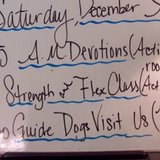 Saturday, December
A.M Devotions (Acti
roo
Strength & Flex Class (Act
Guide Dogs Visit Us (